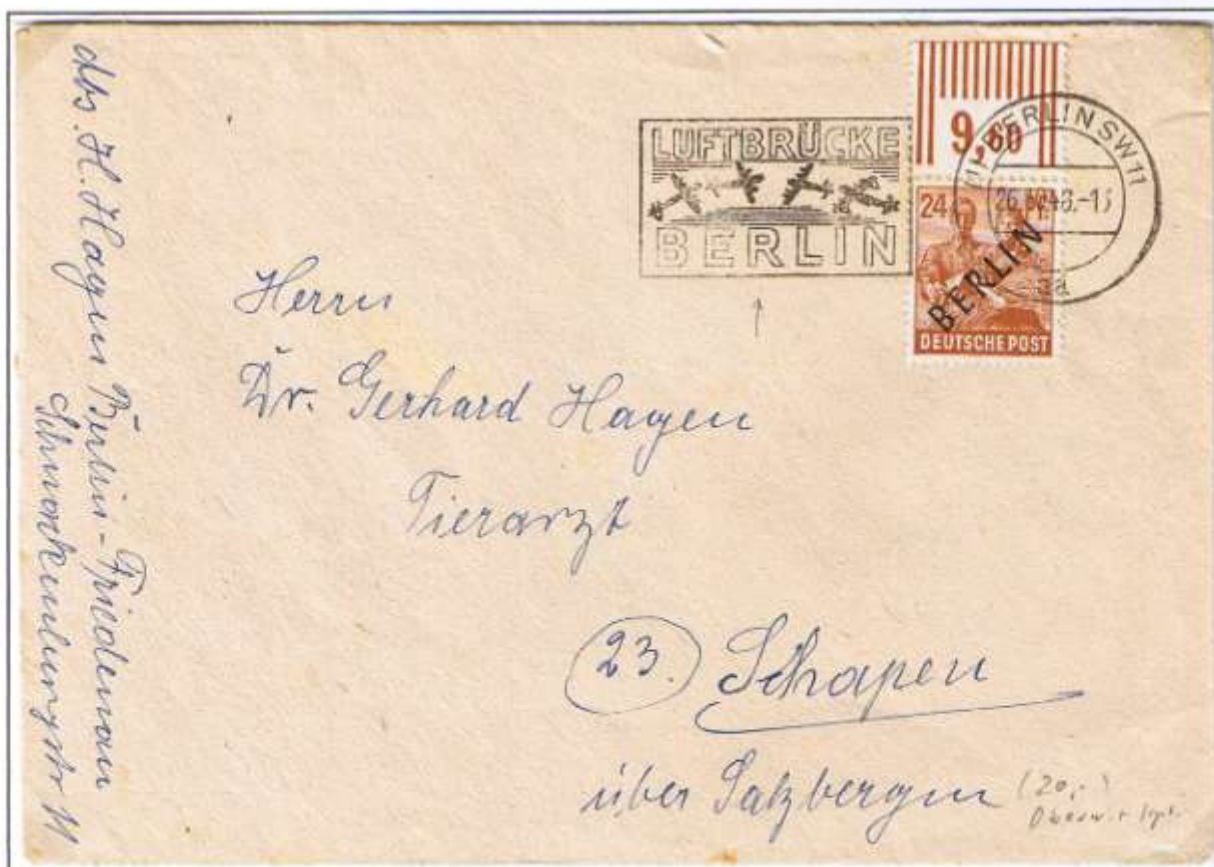 Abs. H. Hagen Berlin-Friedenau
Schmorkenburgstr 11
LUFTBRÜCKE
BERLIN
9,60
BERLIN SW11
24
BERLIN
DEUTSCHE POST
Herrn
Dr. Gerhard Hagen
Tierarzt
23. Schapen
über Salzbergen
(20,-)